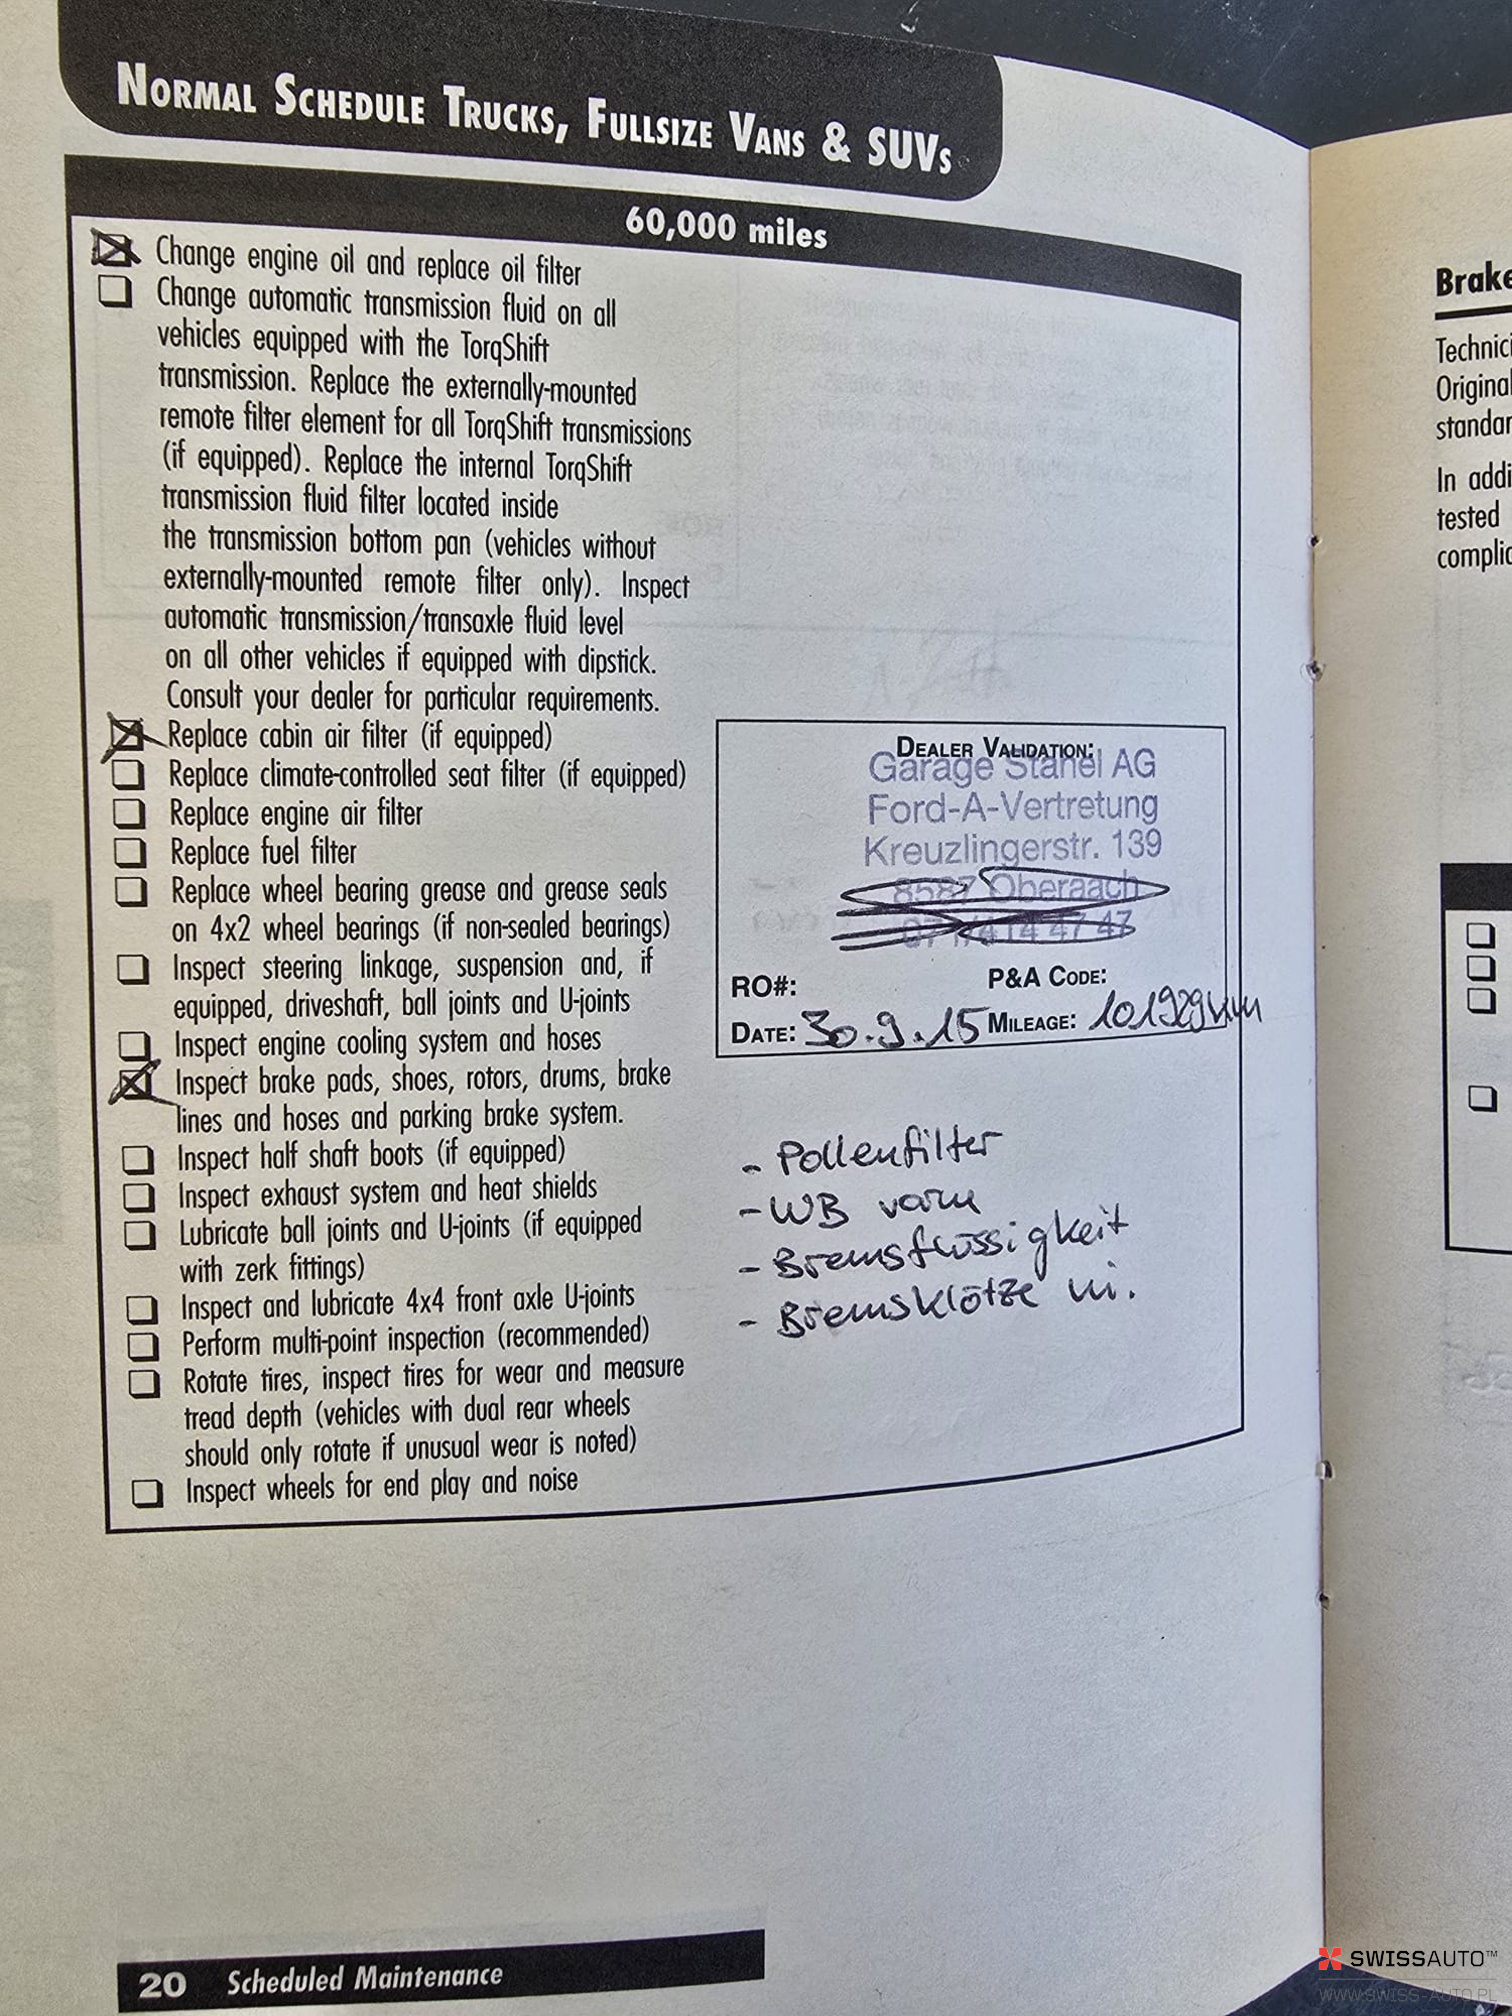 NORMAL SCHEDULE TRUCKS, FULLSIZE VANS & SUVS
60,000 miles
Change engine oil and replace oil filter
Change automatic transmission fluid on all
vehicles equipped with the TorqShift
transmission. Replace the externally-mounted
remote filter element for all TorqShift transmissions
(if equipped). Replace the internal TorqShift
transmission fluid filter located inside
the transmission bottom pan (vehicles without
externally-mounted remote filter only). Inspect
automatic transmission/transaxle fluid level
on all other vehicles if equipped with dipstick.
Consult your dealer for particular requirements.
Replace cabin air filter (if equipped)
Replace climate-controlled seat filter (if equipped)
Replace engine air filter
Replace fuel filter
Replace wheel bearing grease and grease seals
on 4x2 wheel bearings (if non-sealed bearings)
Inspect steering linkage, suspension and, if
equipped, driveshaft, ball joints and U-joints
Inspect engine cooling system and hoses
Inspect brake pads, shoes, rotors, drums, brake
lines and hoses and parking brake system.
Inspect half shaft boots (if equipped)
Inspect exhaust system and heat shields
Lubricate ball joints and U-joints (if equipped
with zerk fittings)
Inspect and lubricate 4x4 front axle U-joints
Perform multi-point inspection (recommended)
Rotate tires, inspect tires for wear and measure
tread depth (vehicles with dual rear wheels
should only rotate if unusual wear is noted)
Inspect wheels for end play and noise
DEALER VALIDATION:
Garage Stahel AG
Ford-A-Vertretung
Kreuzlingerstr. 139
8587 Oberaach
071/414 47 47
RO#:
P&A CODE:
DATE: 30.9.15 MILEAGE: 101929km
- Pollenfilter
- WB vorn
- Bremsflüssigkeit
- Bremsklötze
20 Scheduled Maintenance
Brake
Technici
Original
standar
In addi
tested
complia
SWISSAUTO™
WWW.SWISS-AUTO.PL